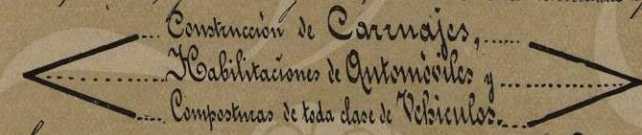 Construcción de Carruajes,
Habilitaciones de Automóviles y
Composturas de toda clase de Vehiculos.